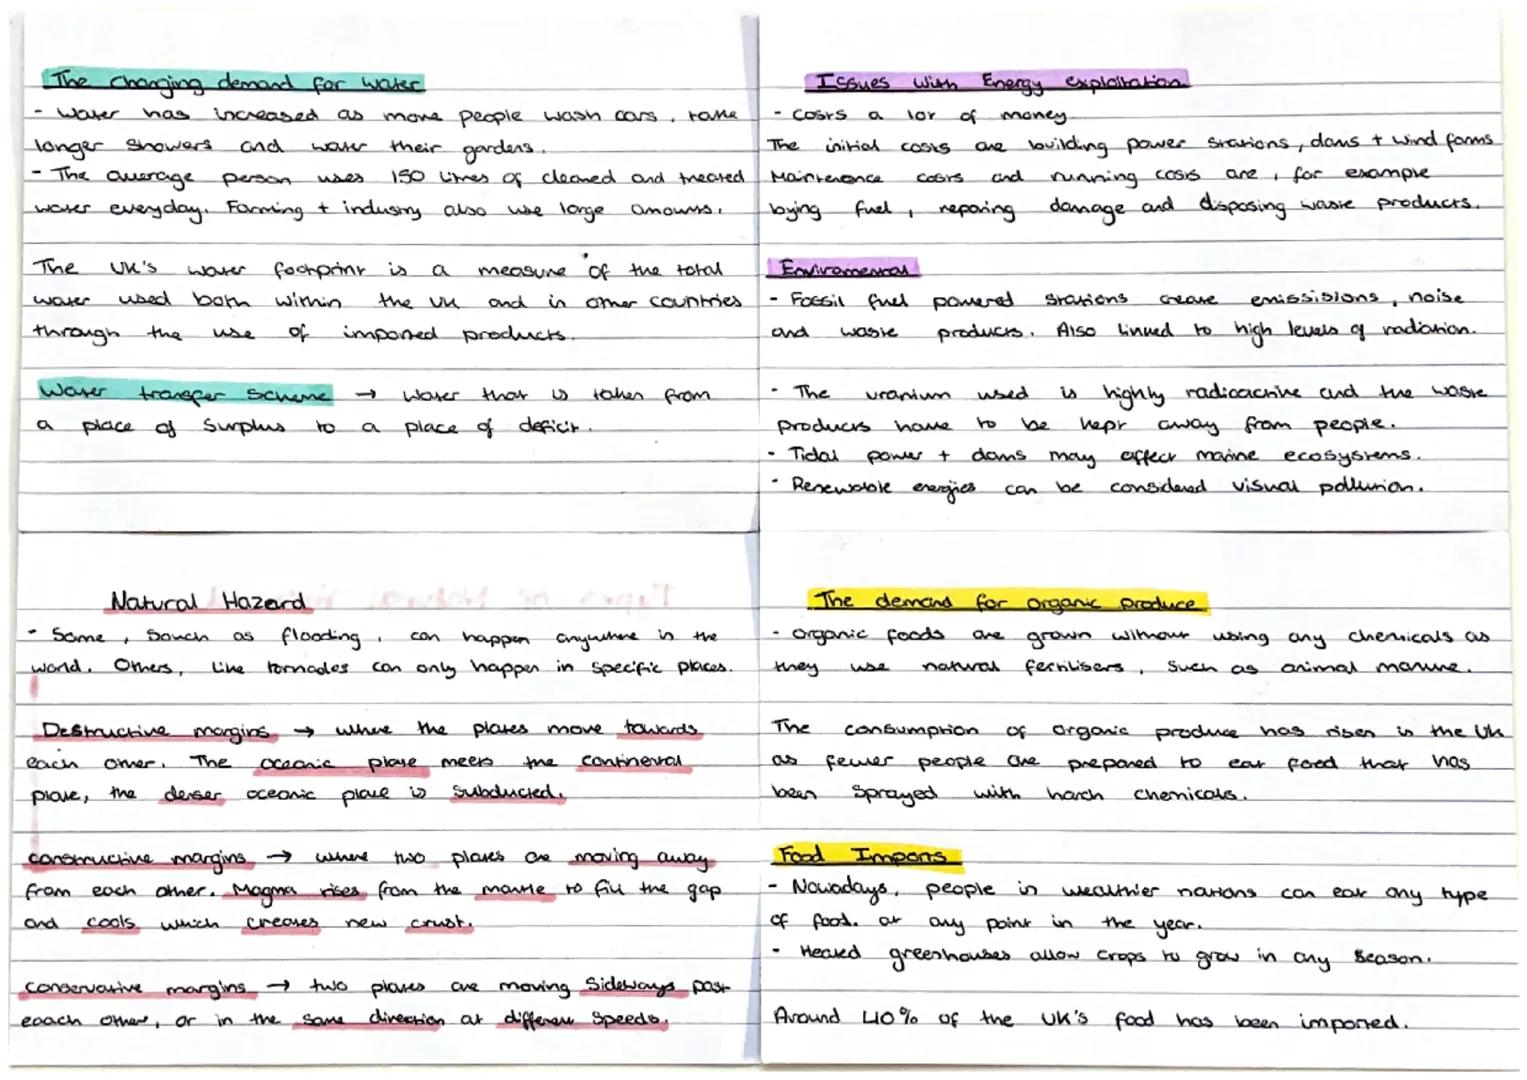 The changing demand for water
- Water has increased as more people wash cars, take
longer showers and water their gardens.
- The average person uses 150 litres of cleaned and treated
water everyday. Farming + industry also use large amounts.
The UK's water footprint is a measure of the total
water used both within the UK and in other countries
through the use of imported products.
Water transfer scheme → water that is taken from
a place of surplus to a place of deficit.
Issues with Energy exploitation
- costs a lot of money
The initial costs are building power stations, dams + wind farms
Maintenence costs and running costs are, for example
bying fuel, reparing damage and disposing waste products.
Enviromental
- Fossil fuel powered stations create emissisions, noise
and waste products. Also linked to high levels of radiation.
- The uranium used is highly radioactive and the waste
products have to be kept away from people.
- Tidal power + dams may affect marine ecosystems.
- Renewable energies can be considered visual pollution.
Natural Hazard
- Some, souch as flooding, can happen anywhere in the
world. Others, like tornadoes can only happen in specific places.
Destructive margins → where the plates move towards
each other. The oceanic plate meets the continental
plate, the denser oceanic plate is subducted.
constructive margins → where two plates are moving away
from each other. Magma rises from the mantle to fill the gap
and cools which creates new crust.
conservative margins → two plates are moving sideways past
eoach other, or in the same direction at different speeds.
The demand for organic produce
- organic foods are grown without using any chemicals as
they use natural fertilisers, such as animal manure.
The consumption of organic produce has risen in the UK
as fewer people are prepared to eat food that has
been sprayed with harch chemicals.
Food Imports
- Nowadays, people in wealthier nations can eat any type
of food. at any point in the year.
- Heated greenhouses allow crops to grow in any season.
Around 40% of the UK's food has been imported.